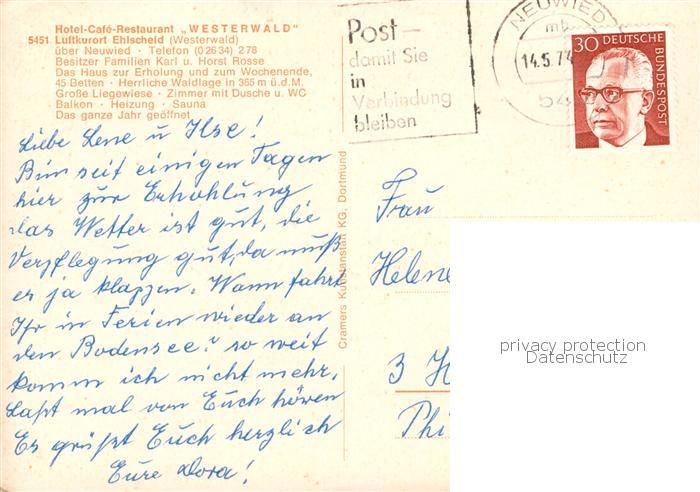 Hotel-Café-Restaurant „WESTERWALD"
5451 Luftkurort Ehlscheid (Westerwald)
über Neuwied · Telefon (0 26 34) 2 78
Besitzer Familien Karl u. Horst Rosse
Das Haus zur Erholung und zum Wochenende,
45 Betten · Herrliche Waldlage in 365 m ü.d.M.
Große Liegewiese · Zimmer mit Dusche u. WC
Balkon · Heizung · Sauna
Das ganze Jahr geöffnet
Liebe Lene u Ilse!
Bin seit einigen Tagen
hier zur Erhohlung
das Wetter ist gut, die
Verpflegung gut, da muß
es ja klappen. Wann fahrt
Ihr in Ferien wieder an
den Bodensee? so weit
komm ich nicht mehr.
Laßt mal von Euch hören
Es grüßt Euch herzlich
Eure Dora!
Cramers Kunstanstalt KG, Dortmund
Post –
damit Sie
in
Verbindung
bleiben
NEUWIED
mb
14.5.74
54
30 DEUTSCHE BUNDESPOST
Frau
Helene
3 H
Phi
privacy protection
Datenschutz